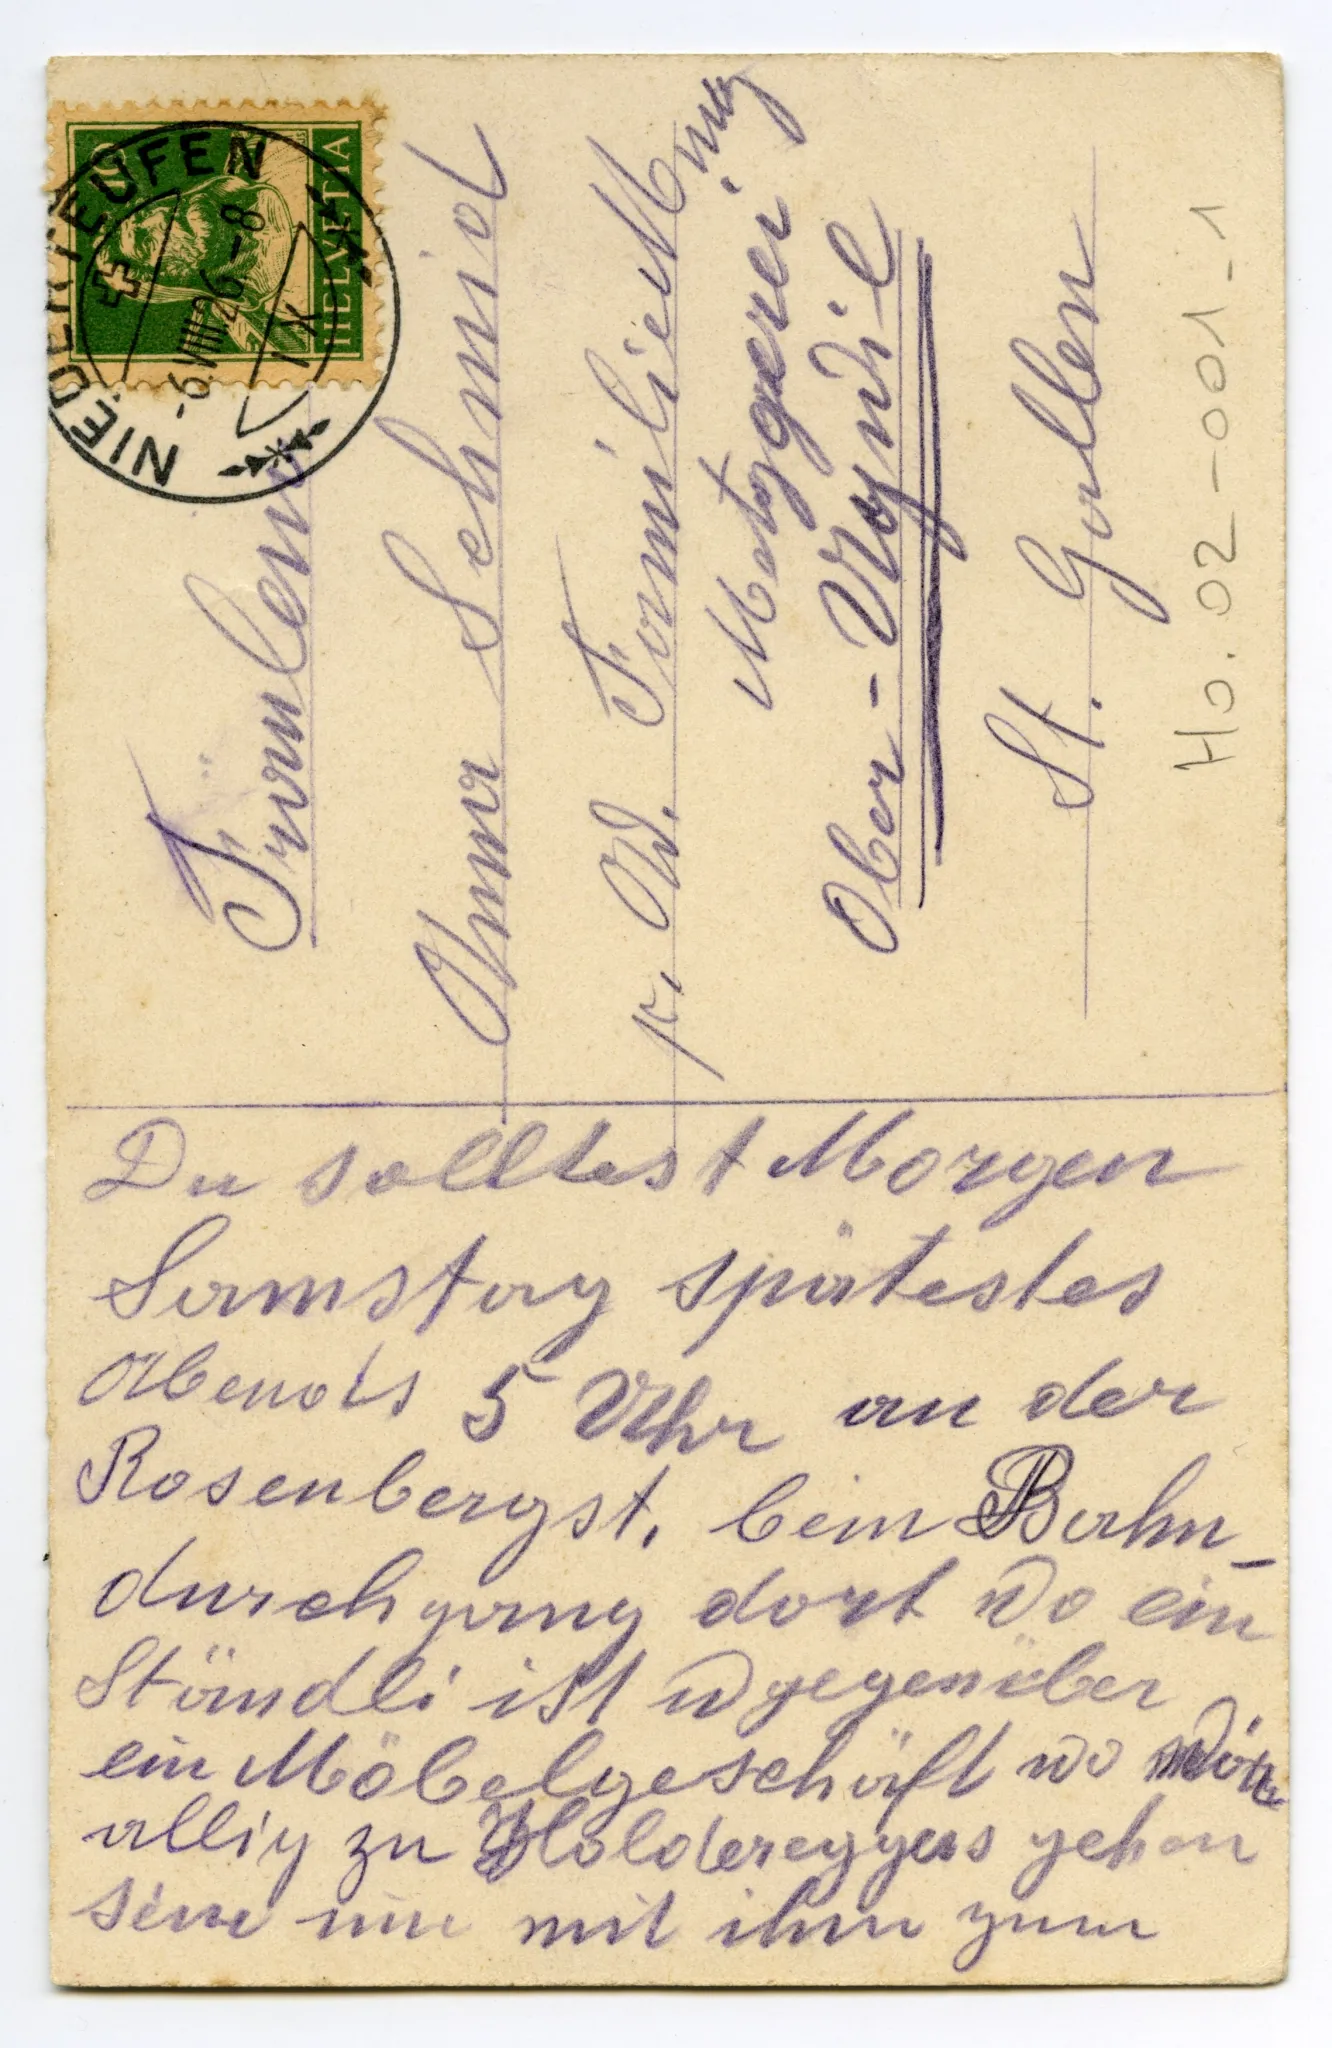 NIEDERTEUFEN
-6.VIII 26-8
IX
10
HELVETIA
Fräulein
Anna Schmid
p. Ad. Familie M
Metzgerei
Ober-Vogndil
St. Gallen
Ho. 02-001-1
Du solltest Morgen
Samstag spätestes
Abends 5 Uhr an der
Rosenbergst. beim Bahn-
durchgang dort wo ein
Ständli ist gegenüber
ein Möbelgeschäft wo
allig zu Holdereggers gehen
mit ihm zum